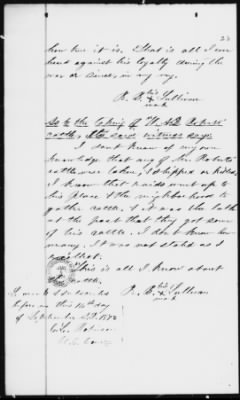 23
how true it is. That is all I ever
heard against his loyalty during the
war or since, in any way.
his
R. B. X Sullivan
mark
As to the taking of
cattle, &c said witness says:
I don't know of my own
knowledge that any of Mr Roberts'
cattle were taken, & shipped or killed.
I know that raids went up to
his place & the neighborhood to
gather cattle, & it was the talk
at the post that they got some
of his cattle. I don't know how
many. It was not stated as I
recollect.
This is all I know about
the cattle.
his
R. B. X Sullivan
mark
Sworn to & subscribed
before me this day
of September A.D. 1873